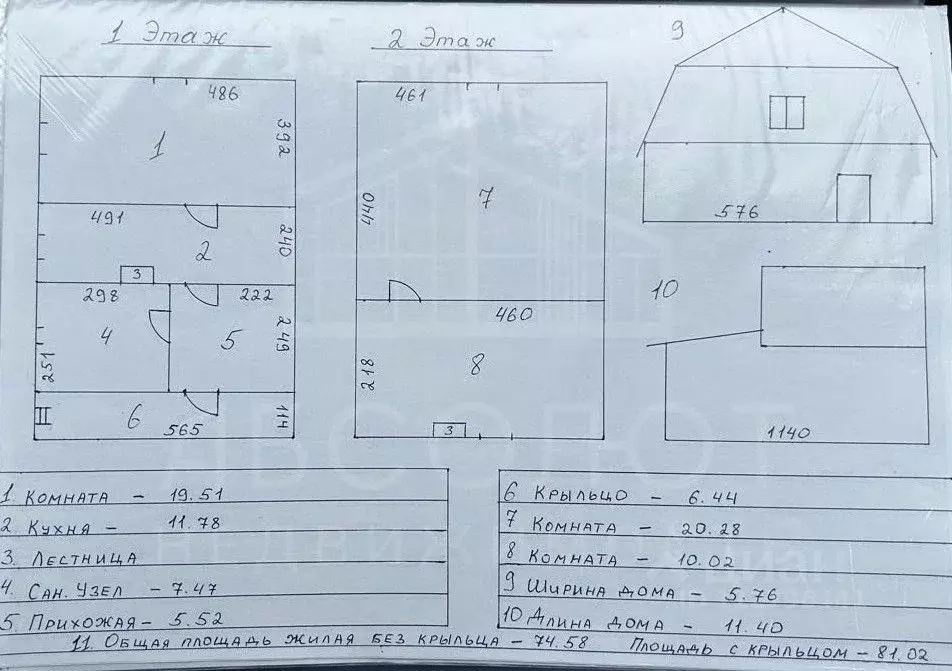 1 Этаж
486
392
1
491
2
240
3
298
222
4
5
249
251
6
565
114
2 Этаж
461
440
7
460
218
8
3
9
576
10
1140
1 Комната - 19.51
2. Кухня - 11.78
3. Лестница
4. Сан. Узел - 7.47
5. Прихожая - 5.52
6 Крыльцо - 6.44
7 Комната - 20.28
8 Комната - 10.02
9 Ширина дома - 5.76
10 Длина дома - 11.40
11. Общая площадь жилая без крыльца - 74.58 Площадь с крыльцом - 81.02